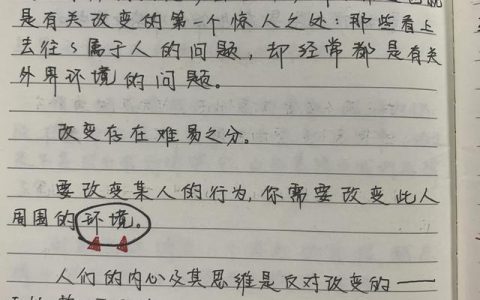 是有关改变的第一个惊人之处：那些看上
去往往属于人的问题，却经常都是有关
外界环境的问题。
改变存在难易之分。
要改变某人的行为，你需要改变此人
周围的环境。
人们的内心及其思维是反对改变的——